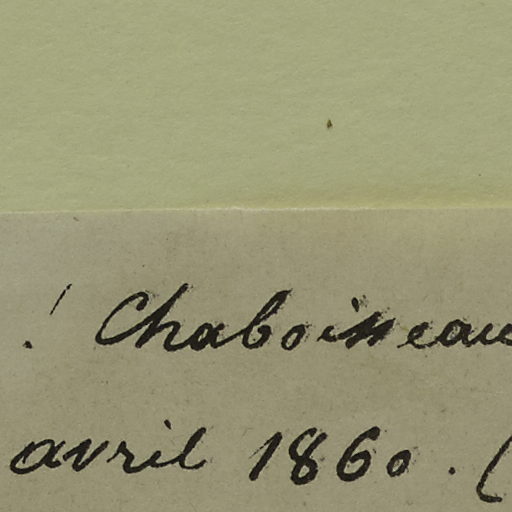 ! Chaboisseau
avril 1860. (